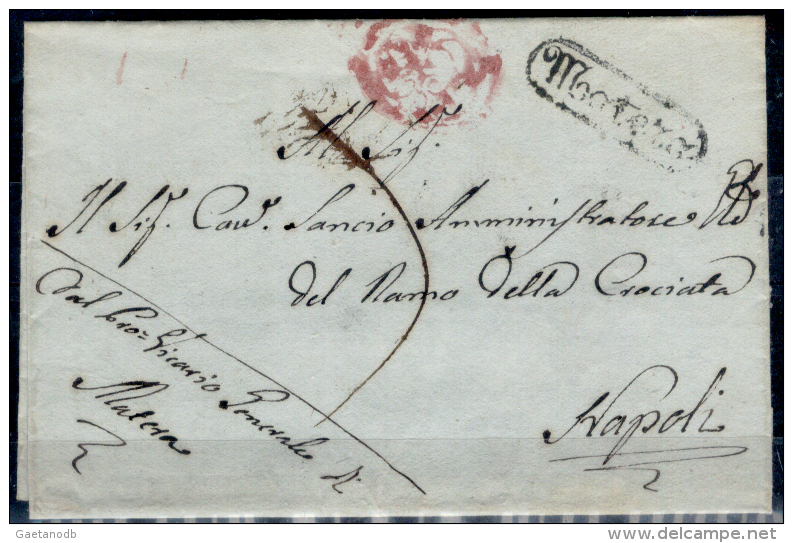 Matera
Al Sig.r
Il Sig.r Cav.r Sancio Amministratore
del Ramo della Crociata
Napoli
Dal Pro Vicario Generale di
Matera
Gaetanodb
delcampe.net